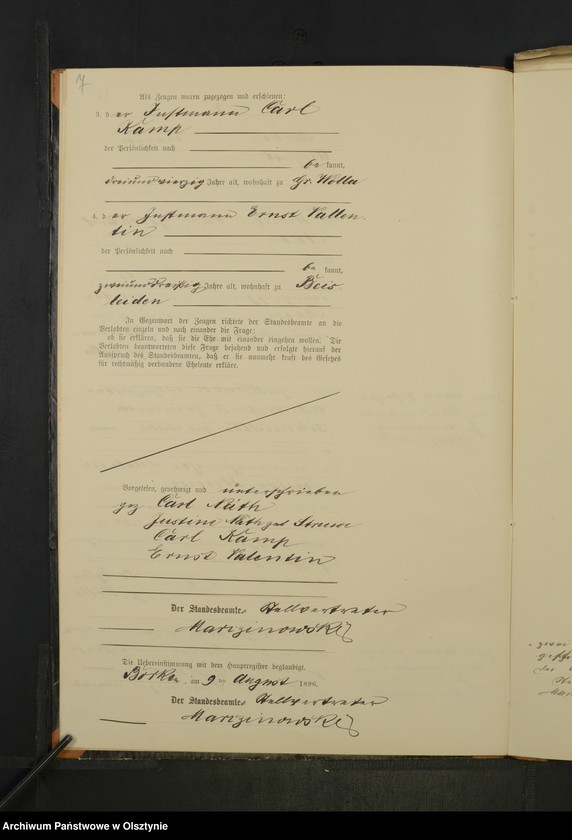 7
Als Zeugen waren zugezogen und erschienen:
3. d er Instmann Carl
Kamp
der Persönlichkeit nach
be kannt,
dreiundvierzig Jahre alt, wohnhaft zu Gr. Wolla
4. d er Instmann Ernst Vallen-
tin
der Persönlichkeit nach
be kannt,
zweiunddreißig Jahre alt, wohnhaft zu Beis-
leiden
In Gegenwart der Zeugen richtete der Standesbeamte an die
Verlobten einzeln und nach einander die Frage:
ob sie erklären, daß sie die Ehe mit einander eingehen wollen. Die
Verlobten beantworteten diese Frage bejahend und erfolgte hierauf der
Ausspruch des Standesbeamten, daß er sie nunmehr kraft des Gesetzes
für rechtmäßig verbundene Eheleute erkläre.
Vorgelesen, genehmigt und unterschrieben
gez Carl Näth
Justine Näth geb Struwe
Carl Kamp
Ernst Valentin
Der Standesbeamte. Stellvertreter
Marizinowski
Die Uebereinstimmung mit dem Hauptregister beglaubigt.
Borken, am 9 ten August 1896.
Der Standesbeamte. Stellvertreter
Marizinowski
Archiwum Państwowe w Olsztynie